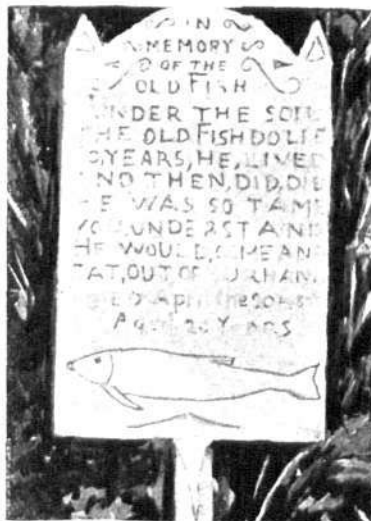 IN
MEMORY
OF THE
OLD FISH
UNDER THE SOIL
THE OLD FISH DO LIE
YEARS, HE, LIVED
AND THEN, DID, DIE
HE WAS SO TAME
YOU, UNDERSTAND
HE WOULD, COME AN
EAT, OUT OF OUR HAND
DIED April the 20
Aged 20 YEARS